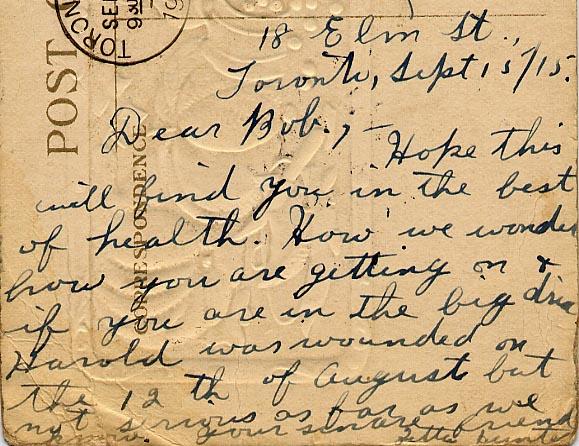 TORON
SE
9 30
19
POST
CORRESPONDENCE
18 Elm St.,
Toronto, Sept 15/15.
Dear Bob,;-
Hope this
will find you in the best
of health. How we wonder
how you are getting on &
if you are in the big drive
Harold was wounded on
the 12 th of August but
not serious as far as we
know. Your sincere friend